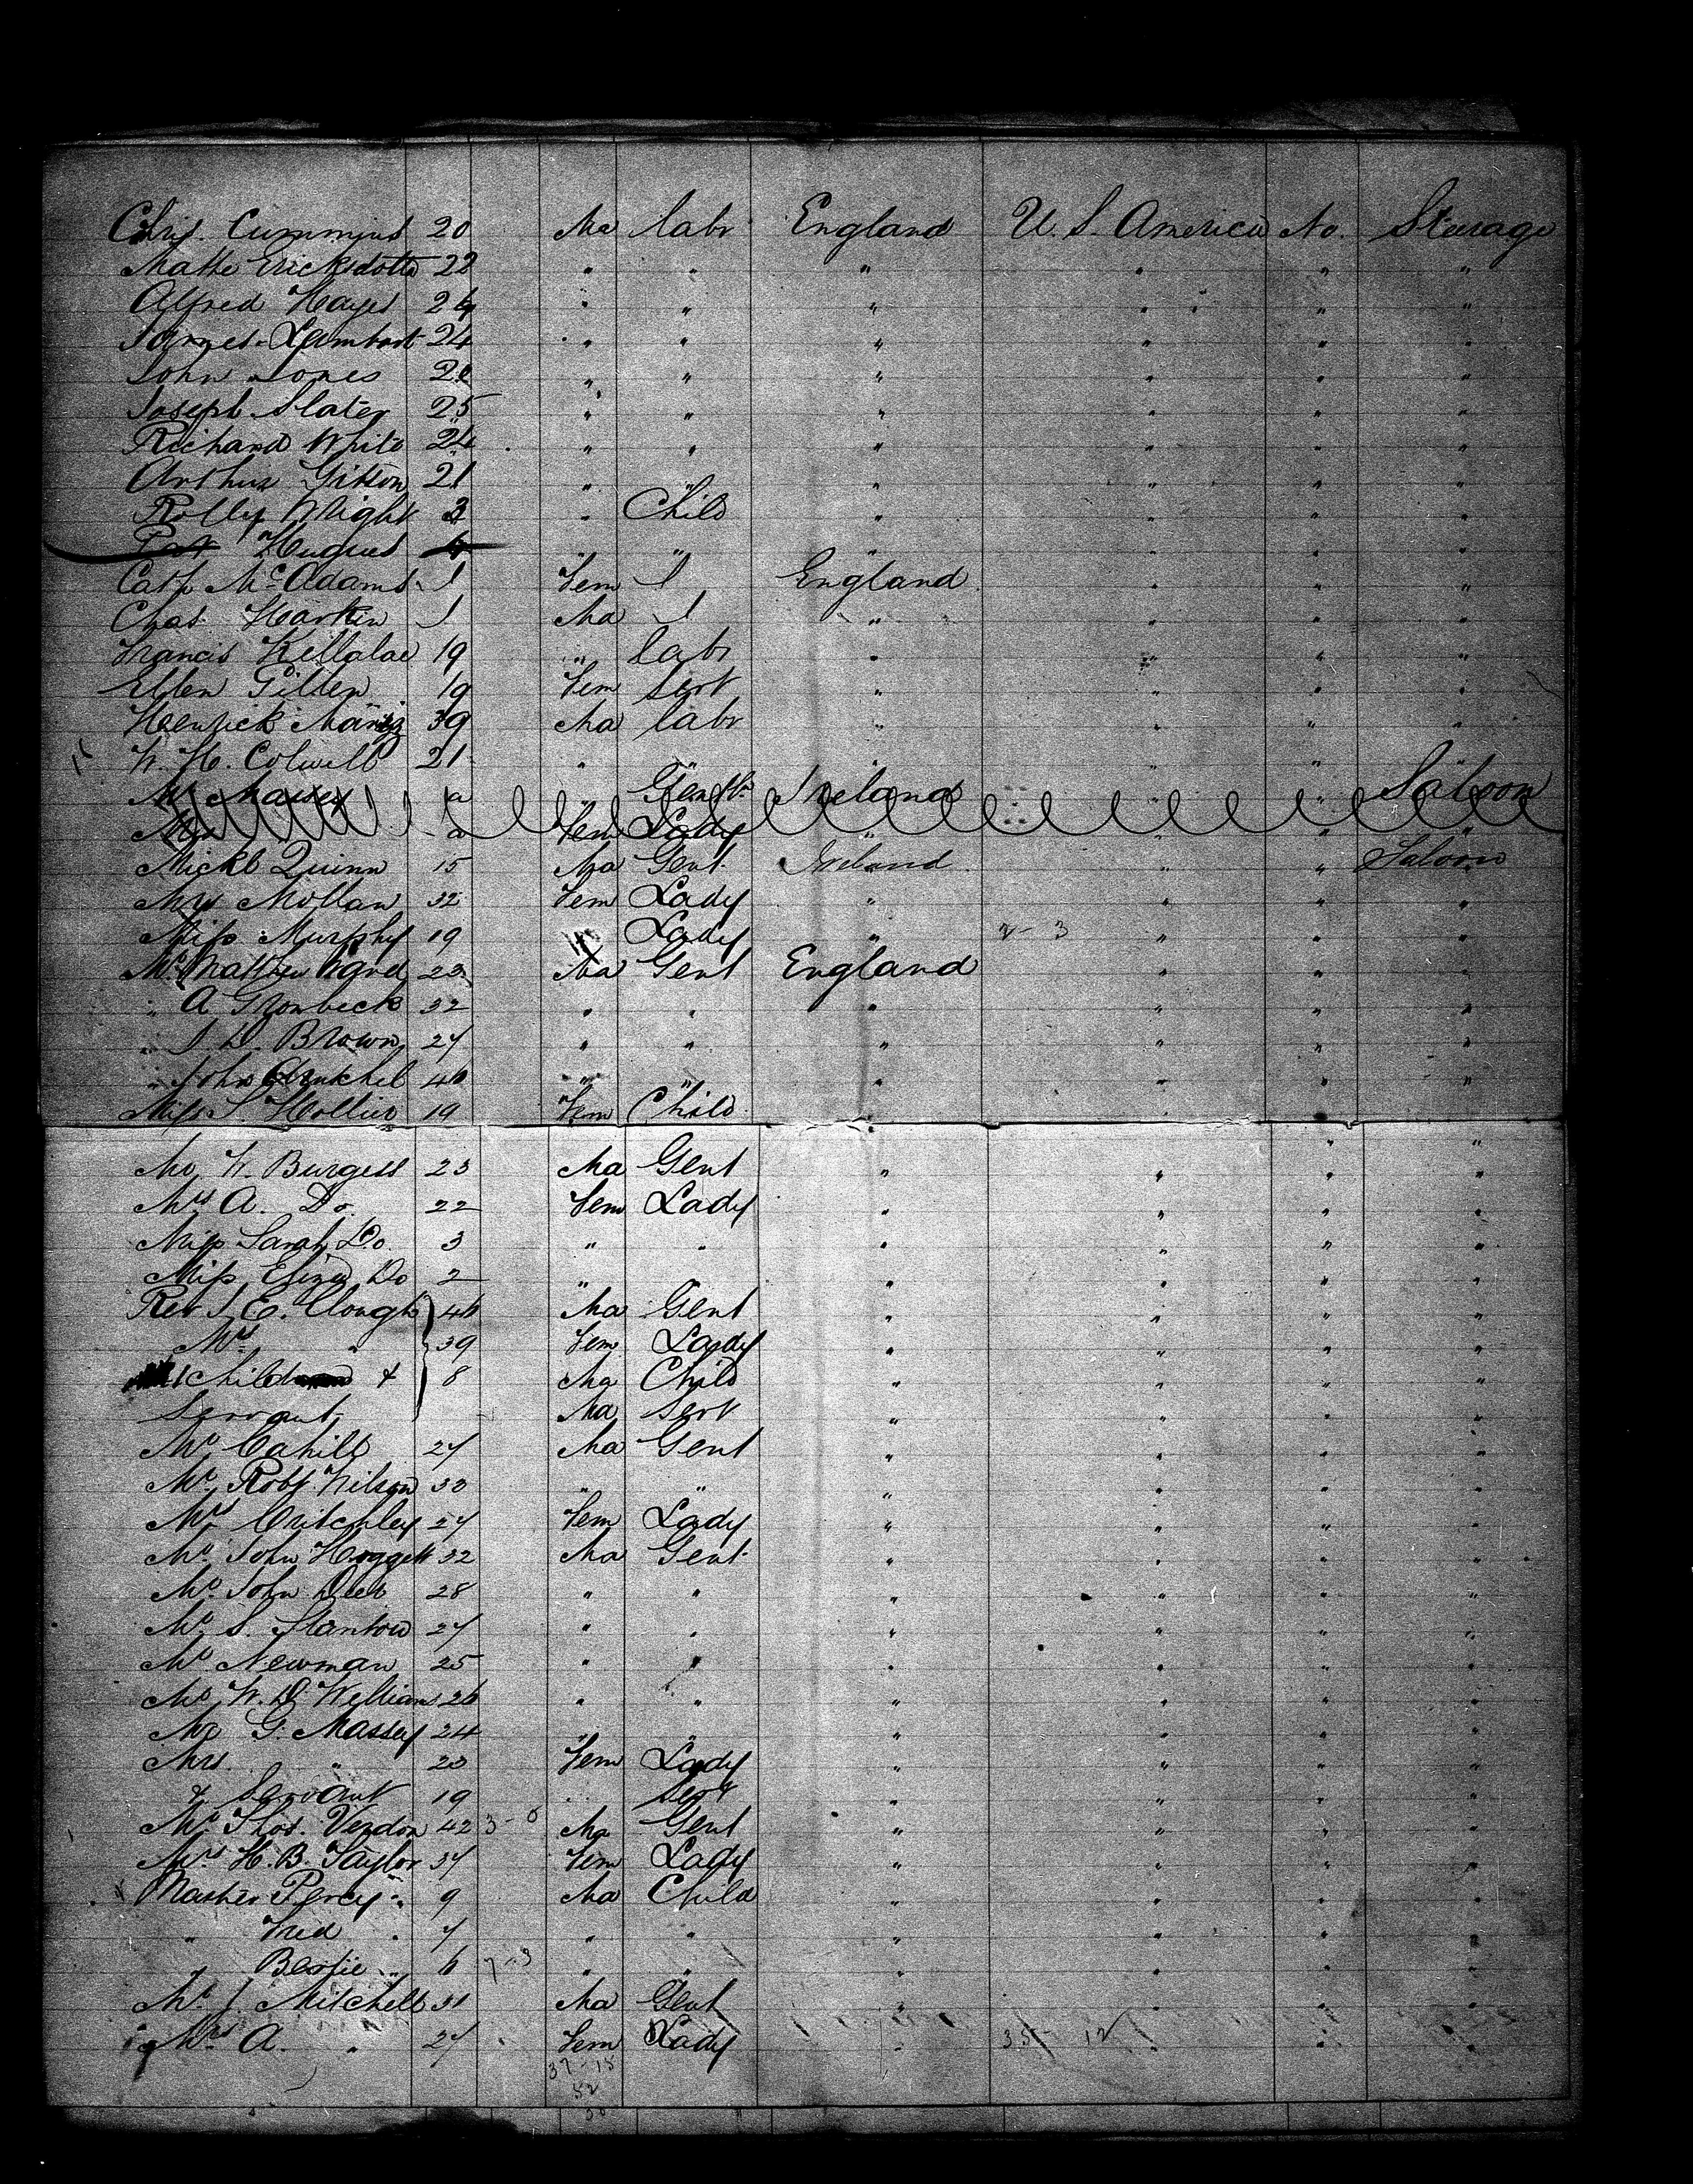 Chris. Cummins 20 Ma labr England U. S. America No. Steerage
Matte Ericksdotta 22 " " " " " "
Alfred Hayes 24 " " " " " "
James Lambart 24 " " " " " "
John Jones 20 " " " " " "
Joseph Slater 25 " " " " " "
Richard White 24 " " " " " "
Arthur Gitson 21 " " " " " "
Rolly Wright 3 " Child " " " "
Hughes " " " " " "
Cath McAdams 1 Fem 1 England " " "
Chas. Harkin 1 Ma 1 " " " "
Francis Kellalae 19 " labr " " " "
Ellen Gillen 19 Fem Sert " " " "
Henrick 39 Ma labr " " " "
W. H. Colwell 21 " " " " " "
Mr Massey a " Gentln Ireland " " Saloon
Mrs a Fem Lady " " " "
Mickl Quinn 15 Ma Gent Ireland " " Saloon
Mrs Mollan 32 Fem Lady " " " "
Miss Murphy 19 Lady " 2 - 3 " " "
Mr Matthew Ward 23 Ma Gent England " " "
" A Gronbeck 32 " " " " " "
" J. D. Brown 27 " " " " " "
" John 46 " " " " " "
Miss S. Hollier 19 Fem Child " " "
Mr W. Burgess 23 Ma Gent " " " "
Mrs A. Do. 22 Fem Lady " " " "
Miss Sarah Do. 3 " " " " " "
Miss Eliza Do 2 " " " " "
Rev J. E. Clough 46 Ma Gent " " " "
Mrs " 39 Fem Lady " " " "
1 Child & 8 Ma Child " " " "
Servant Ma Sert " " " "
Mr Cahill 27 Ma Gent " " " "
Mr Robt Wilson 33 " " " " " "
Mrs Critchley 27 Fem Lady " " " "
Mr John Hoggett 32 Ma Gent " " " "
Mr John 28 " " " " " "
Mr S. Stanton 27 " " " " " "
Mr Newman 25 " " " " " "
Mr W. D. Williams 26 " " " " " "
Mr G. Massey 24 " " " " " "
Mrs. " 23 Fem Lady " " " "
& Servant 19 " Sert " " " "
Mr Thos. Verdon 42 3 - 0 Ma Gent " " " "
Mrs H. B. Taylor 37 Fem Lady " " " "
Master Percy " 9 Ma Child " " " "
" Fred " 7 " " " " " "
" Bertie " 6 7 - 3 " " " " " "
Mr J. Mitchell 31 Ma Gent " " " "
Mrs A. " 27 Fem Lady " 35 12 " " "
37 - 15
52